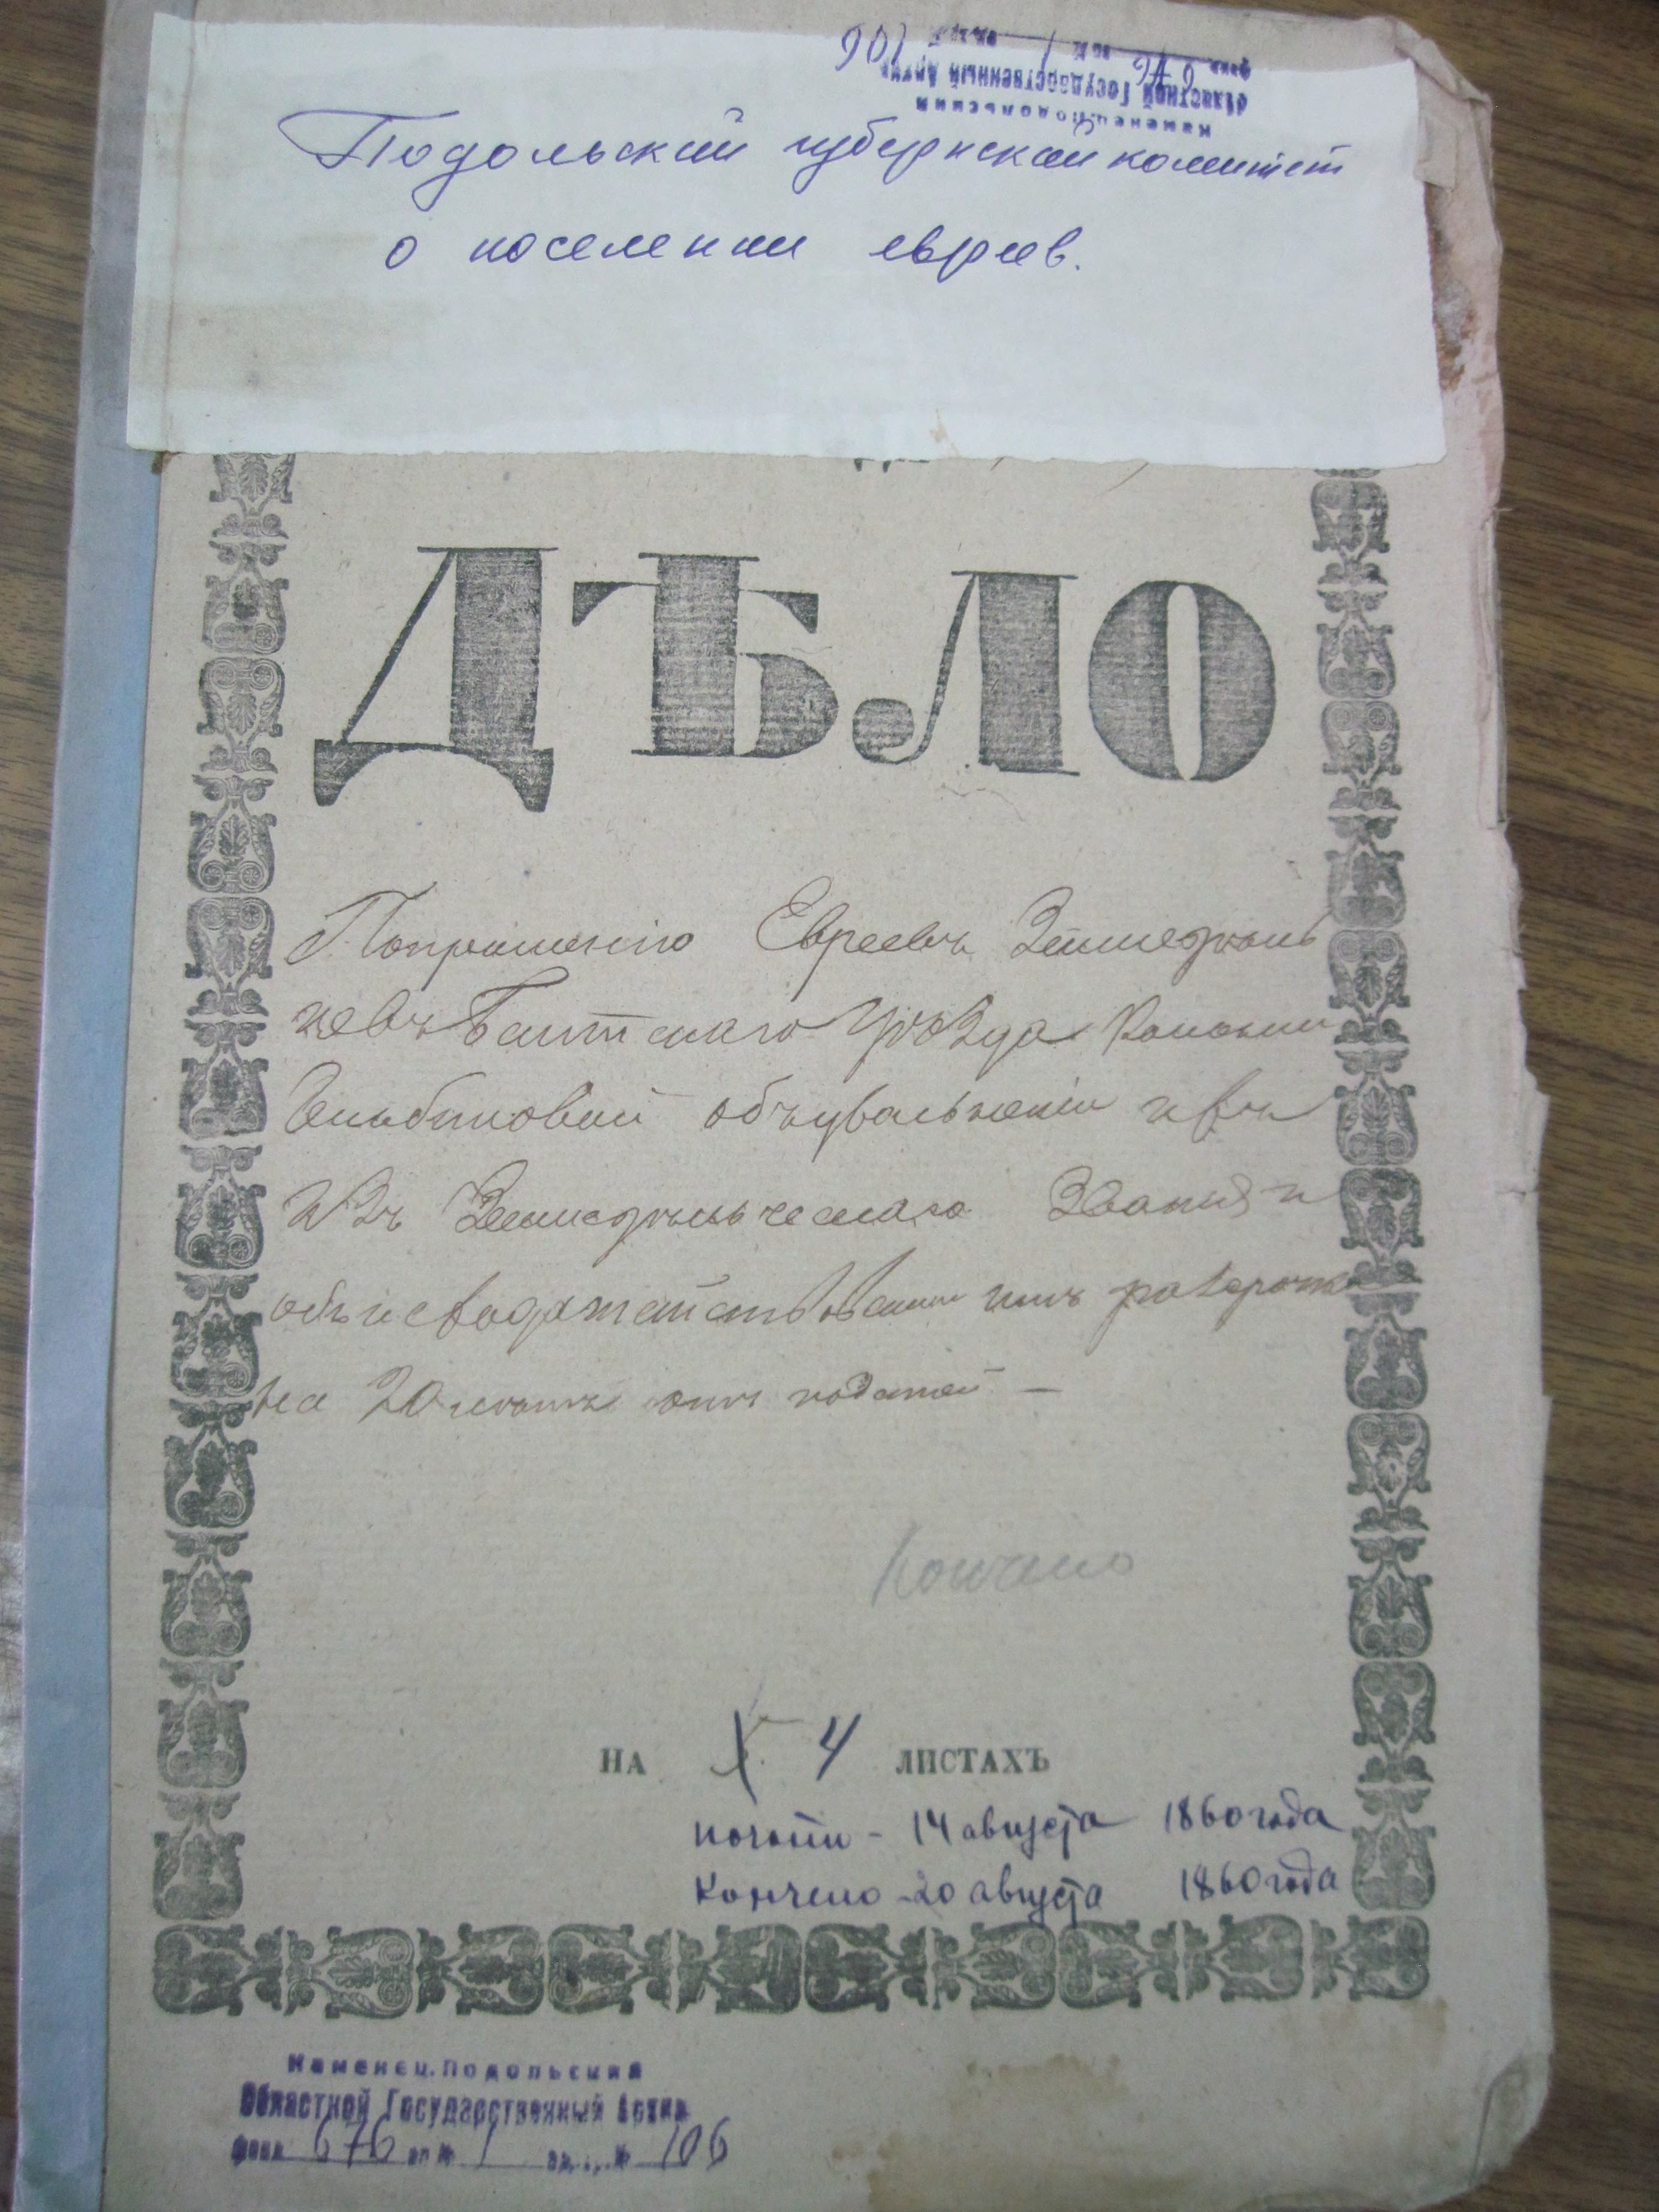 Каменец-Подольский
Областной Государственный Архив
фонд 676 оп № 1 ед. хр. № 106
Подольский губернский комитет
о поселении евреев.
ДѢЛО
Попрошенію Евреевъ Земледѣль
цевъ Балтскаго Уѣзда Колоніи
обѣувальненіи ихъ
изъ Земледѣльческаго Званія и
объисходатайствованіи имъ разсрочки
на 20 лѣтъ отъ податей —
Кончено
НА 4 ЛИСТАХЪ
начато - 14 августа 1860 года
Кончено - 20 августа 1860 года
Каменец-Подольский
Областной Государственный Архив
фонд 676 оп № 1 ед. хр. № 106